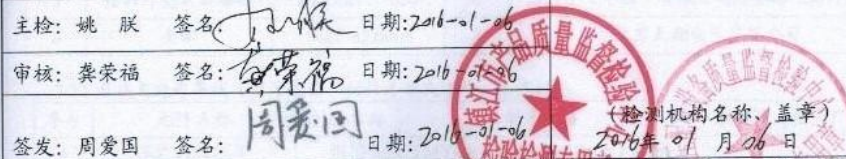 主检: 姚 朕 签名: 日期:2016-01-06
审核: 龚荣福 签名: 龚荣福 日期: 2016-01-06
签发: 周爱国 签名: 周爱国 日期: 2016-01-06
镇江市产品质量监督检验
检验检测专用
设备质量监督检验中
(检测机构名称、盖章)
2016年 01 月 06 日